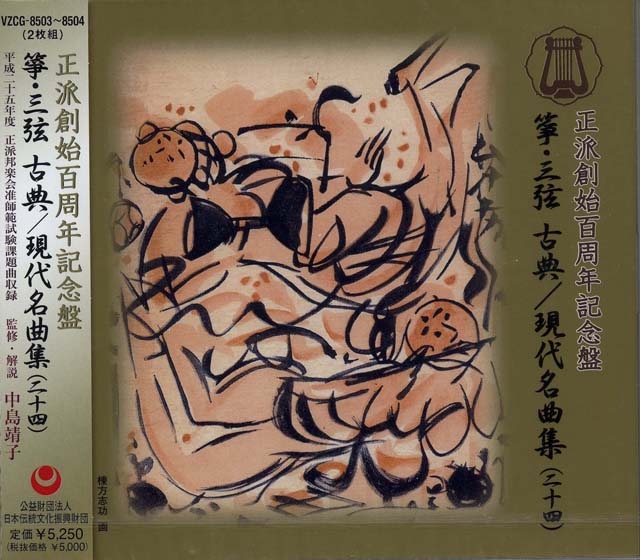 VZCG-8503～8504
(2枚組)
正派創始百周年記念盤
箏・三弦 古典／現代名曲集(二十四)
平成二十五年度 正派邦楽会准師範試験課題曲収録 監修・解説 中島靖子
公益財団法人
日本伝統文化振興財団
定価￥5,250
(税抜価格￥5,000)
棟方志功 画
正派創始百周年記念盤
箏・三弦 古典／現代名曲集(二十四)